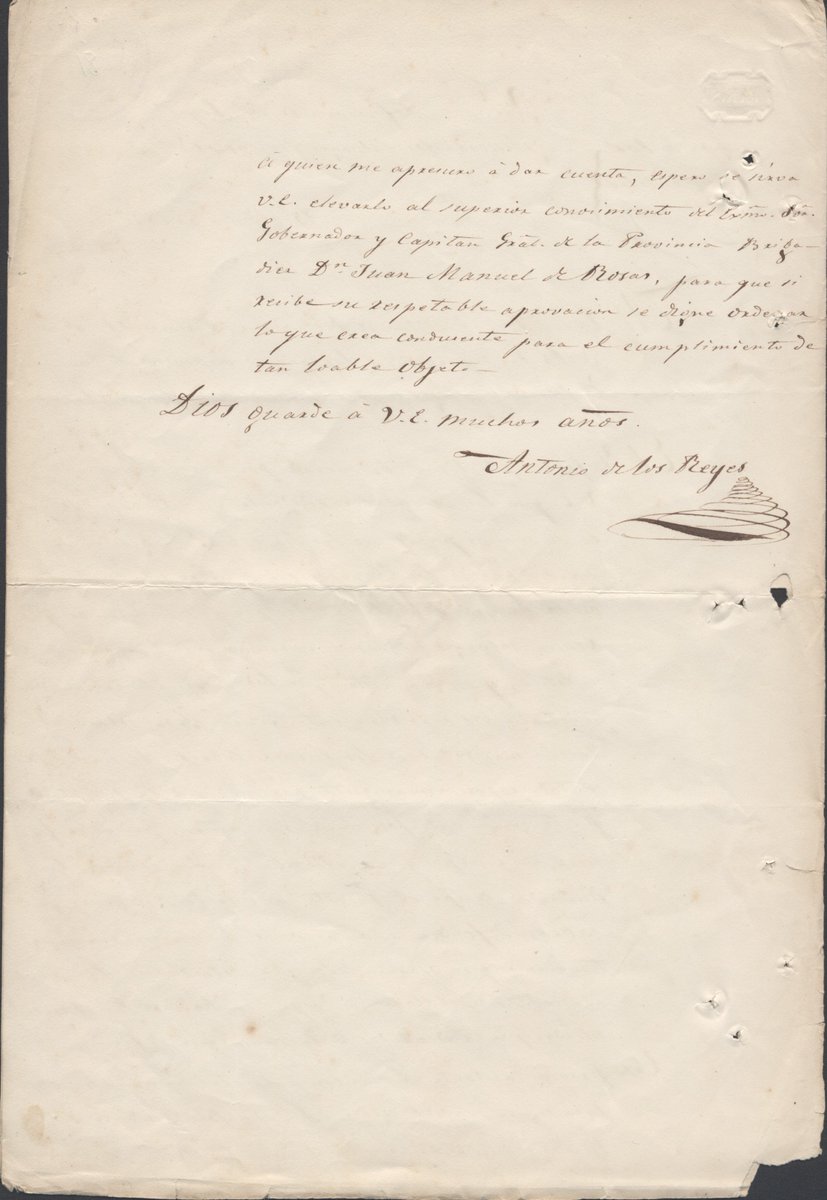 á quien me apresuro á dar cuenta, espero se sirva
V.E. elevarlo al superior conocimiento del Exmo. Sõr.
Gobernador y Capitan Grãl. de la Provincia Briga-
dier Dn Juan Manuel de Rosas, para que si
recibe su respetable aprovacion se digne ordenar
lo que crea conducente para el cumplimiento de
tan loable objeto—
Dios guarde á V.E. muchos años.
Antonio de los Reyes